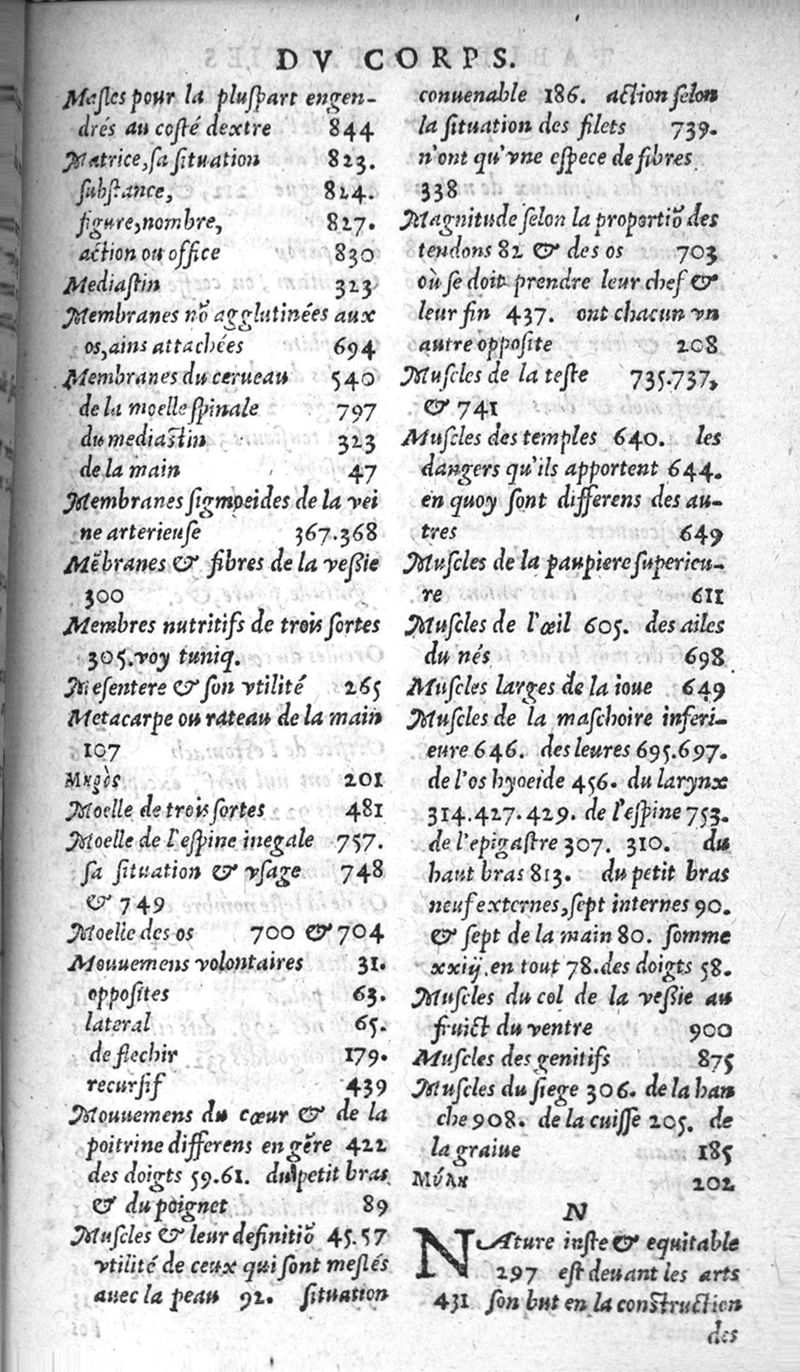 DV CORPS.
Masles pour la pluspart engen-
drés au costé dextre 844
Matrice, sa situation 823.
substance, 824.
figure, nombre, 827.
action ou office 830
Mediastin 323
Membranes nõ agglutinées aux
os, ains attachées 694
Membranes du cerueau 540
de la moelle spinale 797
du mediastin 323
de la main 47
Membranes sigmoeides de la vei
ne arterieuse 367.368
Mẽbranes & fibres de la vessie
300
Membres nutritifs de trois sortes
305. voy tuniq.
Mesentere & son vtilité 265
Metacarpe ou rateau de la main
107
201
Moelle de trois sortes 481
Moelle de l'espine inegale 757.
sa situation & vsage 748
& 749
Moelle des os 700 & 704
Mouuemens volontaires 31.
opposites 63.
lateral 65.
de flechir 179.
recursif 439
Mouuemens du cœur & de la
poitrine differens en gẽre 422
des doigts 59.61. du petit bras
& du poignet 89
Muscles & leur definitiõ 45.57
vtilité de ceux qui sont meslés
auec la peau 92. situation
conuenable 186. action selon
la situation des filets 739.
n'ont qu'vne espece de fibres
338
Magnitude selon la proportiõ des
tendons 82 & des os 703
où se doit prendre leur chef &
leur fin 437. ont chacun vn
autre opposite 208
Muscles de la teste 735.737,
& 741
Muscles des temples 640. les
dangers qu'ils apportent 644.
en quoy sont differens des au-
tres 649
Muscles de la paupiere superieu-
re 611
Muscles de l'œil 605. des ailes
du nés 698
Muscles larges de la ioue 649
Muscles de la maschoire inferi-
eure 646. des leures 695.697.
de l'os hyoeide 456. du larynx
314.427.429. de l'espine 753.
de l'epigastre 307. 310. du
haut bras 813. du petit bras
neuf externes, sept internes 90.
& sept de la main 80. somme
xxiij. en tout 78. des doigts 58.
Muscles du col de la vessie au
fruict du ventre 900
Muscles des genitifs 875
Muscles du siege 306. de la han
che 908. de la cuisse 205. de
la graiue 185
Μύλη 202
N
NAture iuste & equitable
297 est deuant les arts
431 son but en la construction
des